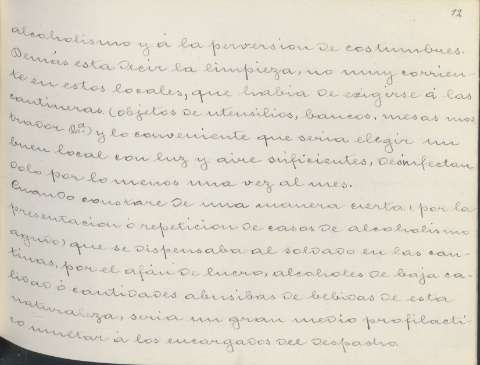 12
alcoholismo y á la perversion de costumbres.
Demás está decir la limpieza, no muy corrien-
te en estos locales, que habia de exigirse á las
cantineras. (objetos de utensilios, bancos, mesas mos
trador &a) y lo conveniente que seria elegir un
buen local con luz y aire suficientes, desinfectan
dolo por lo menos una vez al mes.
Cuando constare de una manera cierta, por la
presentacion ó repeticion de casos de alcoholismo
agudo) que se dispensaba al soldado en las can-
tinas, por el afán de lucro, alcoholes de baja ca-
lidad ó cantidades abusibas de bebidas de esta
naturaleza, seria un gran medio profilacti-
co multar á los encargados del despacho